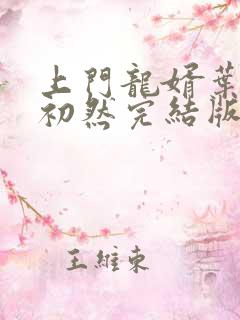 上門龍婿葉
初然完結版
王維東